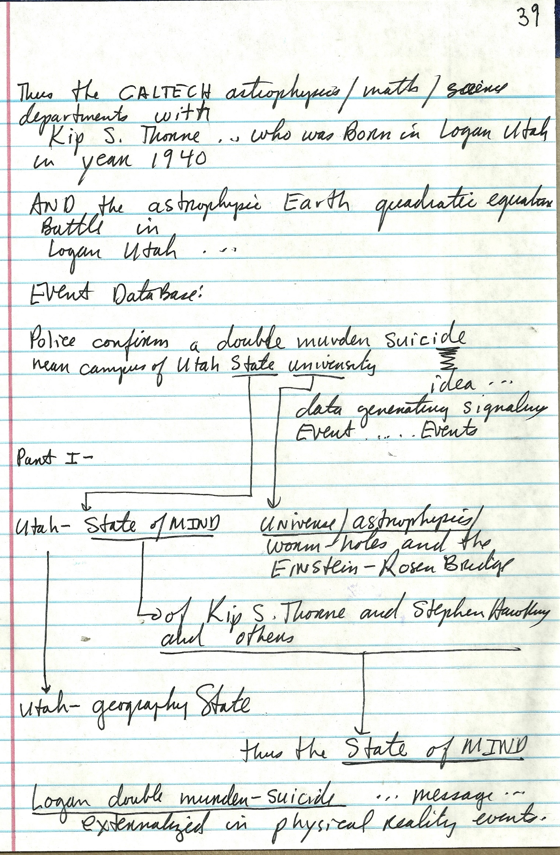 39
Thus the CALTECH astrophysics/math/science
departments with
Kip S. Thorne ... who was Born in Logan Utah
in year 1940
AND the astrophysic Earth quadratic equation
Battle in
Logan Utah ...
Event DataBase:
Police confirm a double murder suicide
near campus of Utah State University
idea ...
data generating signaling
Event ..... Events
Part I-
Utah- State of MIND
Universe/astrophysics/
worm-holes and the
Einstein-Rosen Bridge
of Kip S. Thorne and Stephen Hawking
and others
Utah- geography State
thus the State of MIND
Logan double murder-suicide ... message ...
externalized in physical reality events.